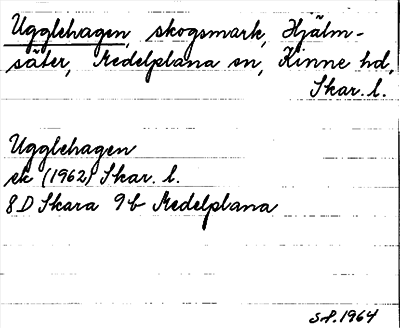 Ugglehagen, skogsmark, Hjälm-
säter, Medelplana sn, Kinne hd,
Skar. l.
Ugglehagen
ek (1962) Skar. l.
8D Skara 9b Medelplana
1964